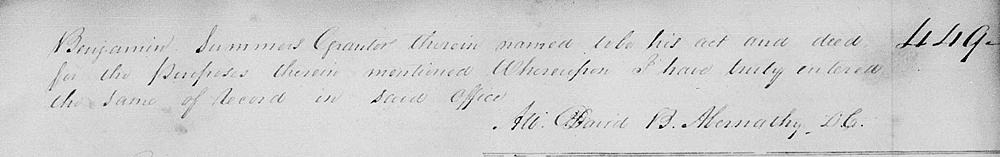 Benjamin Summers Grantor therein named to be his act and deed 449
for the purposes therein mentioned Whereupon I have truly entered
the same of record in said office
Att. David B. Abernathy D.C.